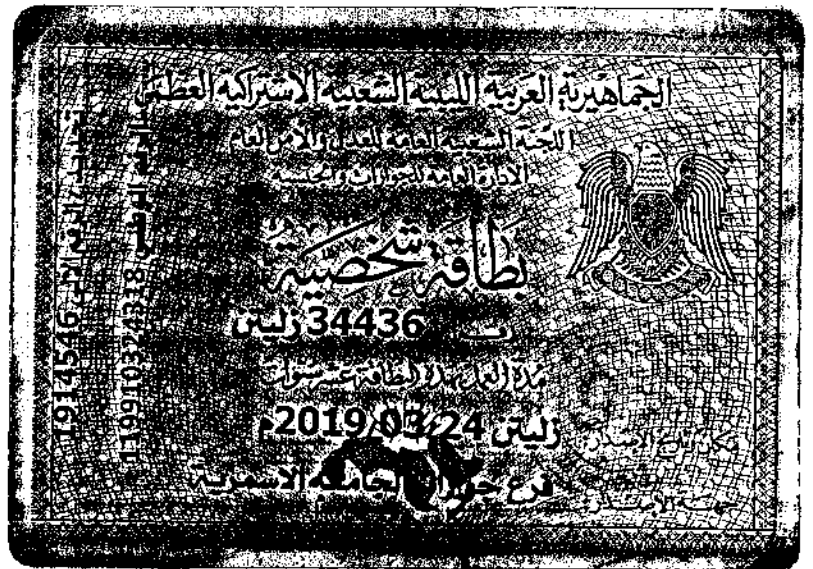 الجماهيرية العربية الليبية الشعبية الاشتراكية العظمى
اللجنة الشعبية العامة للعدل والأمن العام
الإدارة العامة للجوازات والجنسية
بطاقة شخصية
34436 زليتن
مدة العمل بهذه البطاقة عشر سنوات
مكان وتاريخ الإصدار زليتن 2019/03/24م
جهة الإصدار فرع جوازات الجامعة الاسمرية
الرقم الوطني 119910324318
1914546